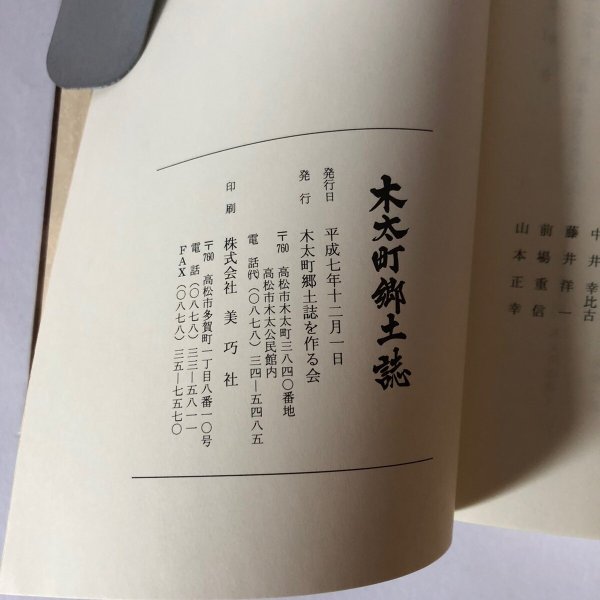 中井幸比古
藤井洋一
前場重信
山本正幸
木太町郷土誌
発行日 平成七年十二月一日
発行 木太町郷土誌を作る会
〒760 高松市木太町三八四〇番地
高松市木太公民館内
電話㈹(〇八七八)三四―五四八五
印刷 株式会社 美巧社
〒760 高松市多賀町一丁目八番一〇号
電話(〇八七八)三三―五八一一
FAX(〇八七八)三五―七五七〇